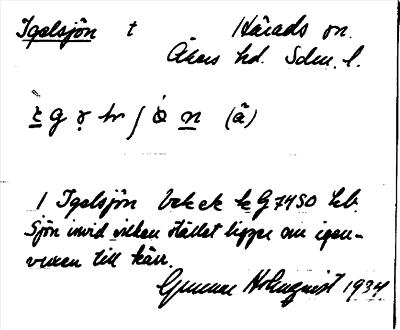 Igelsjön t Härads sn.
Åkers hd. Sdm. l.
(å)
1 Igelsjön bek ek G7450 hb.
Sjön invid vilken stället ligger om igen-
vuxen till kärr.
Gunnar Holmqvist 1934